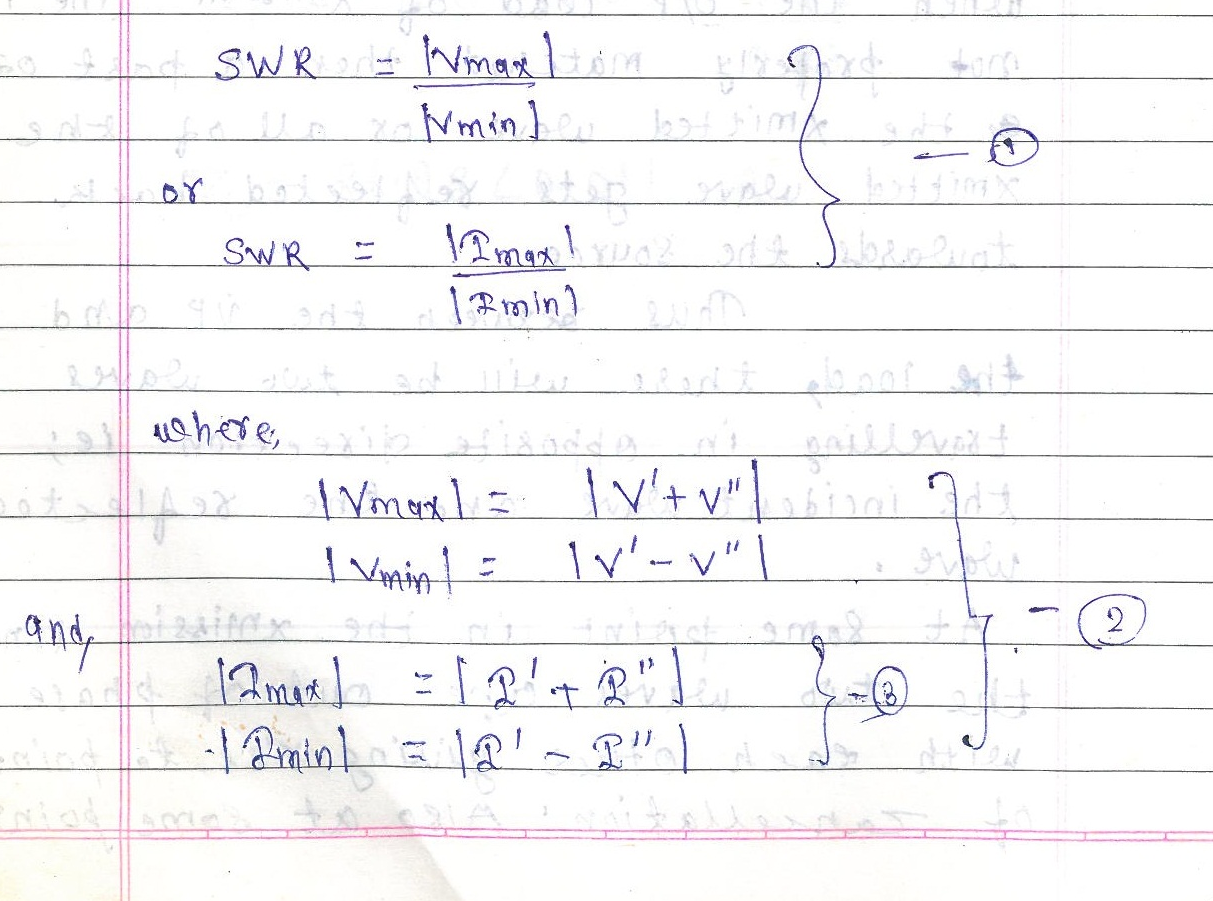 SWR = |Vmax|
|Vmin|
— 1
or
SWR = |Imax|
|Imin|
where,
|Vmax| = |V' + V"|
|Vmin| = |V' - V"|
- 2
and,
|Imax| = |I' + I"|
- 3
|Imin| = |I' - I"|